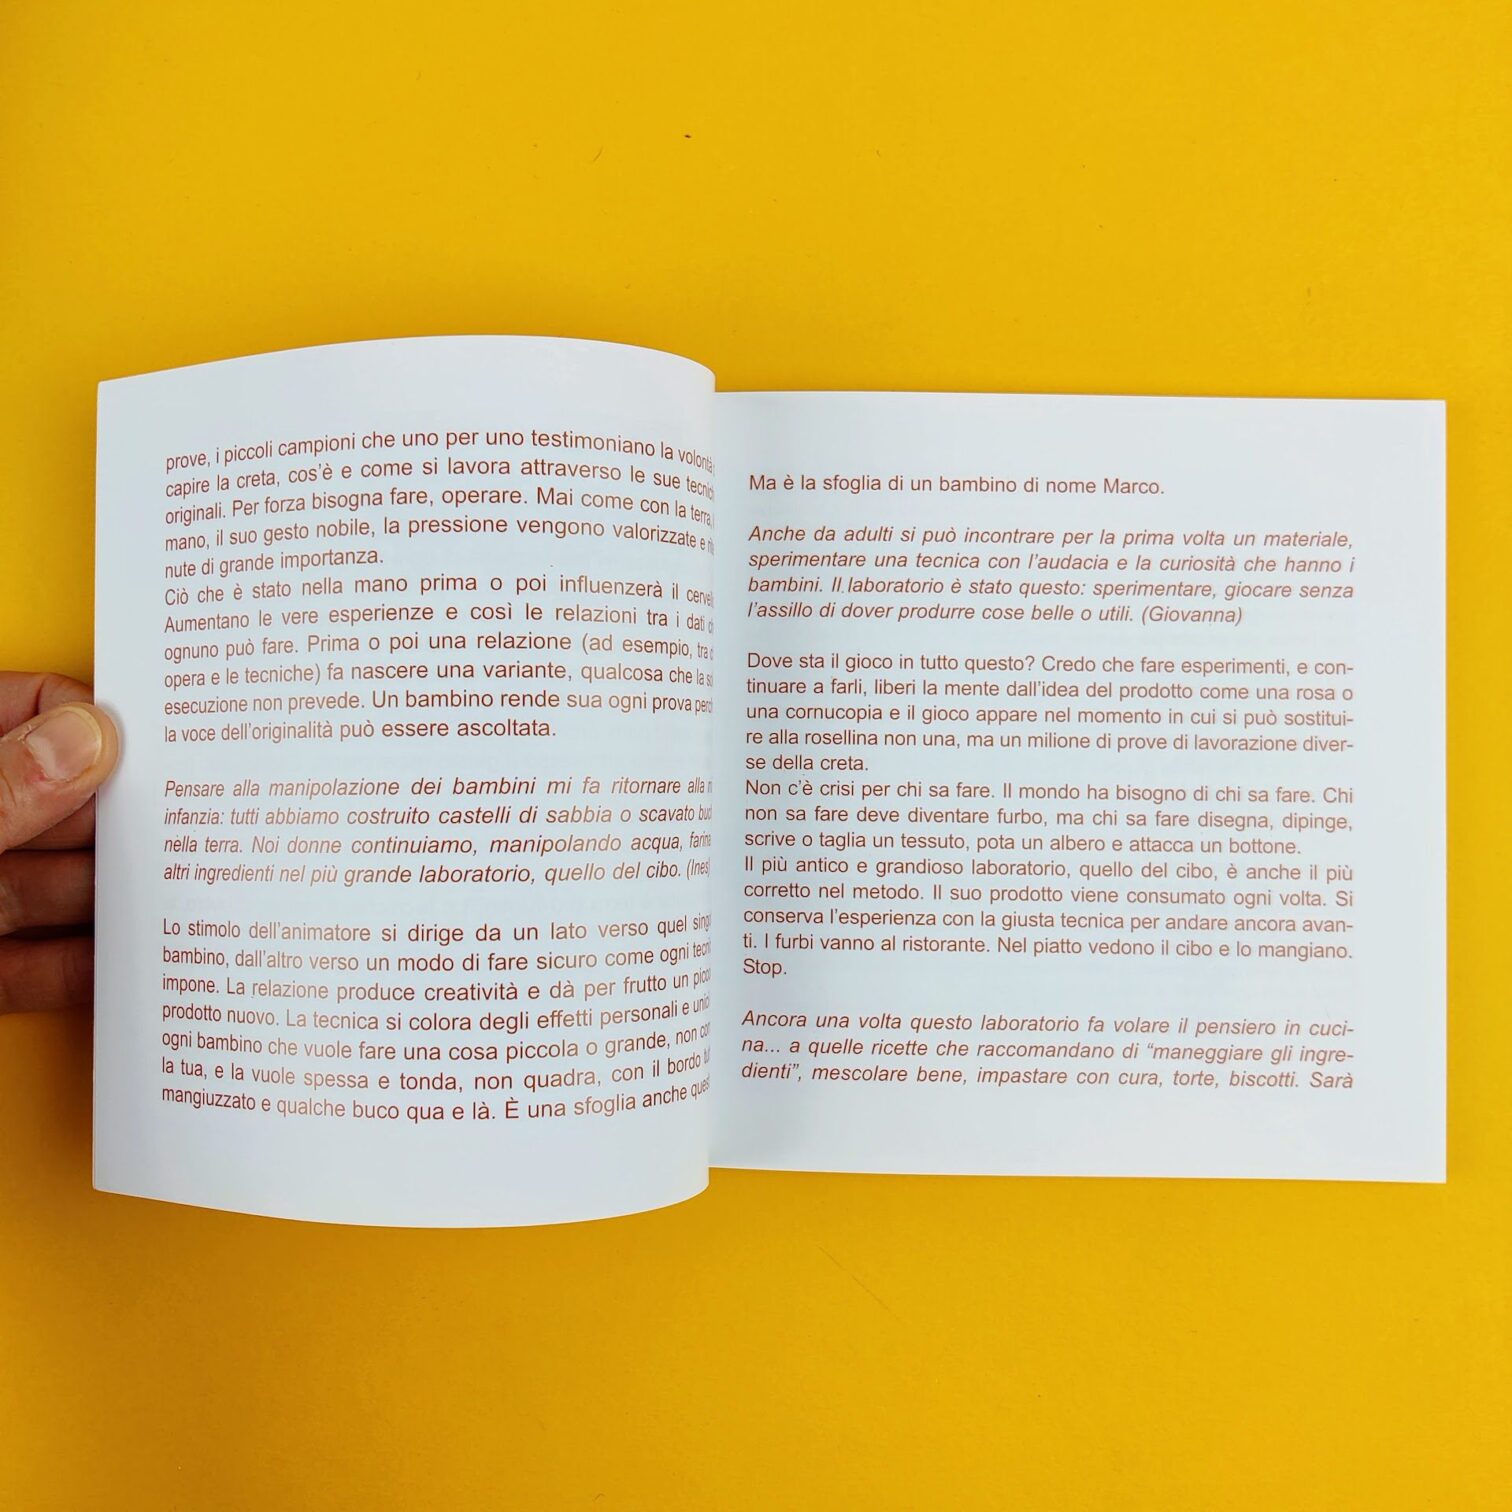 prove, i piccoli campioni che uno per uno testimoniano la volontà
capire la creta, cos'è e come si lavora attraverso le sue
originali. Per forza bisogna fare, operare. Mai come con la terra,
mano, il suo gesto nobile, la pressione vengono valorizzate e
nute di grande importanza.
Ciò che è stato nella mano prima o poi influenzerà il
Aumentano le vere esperienze e così le relazioni tra i dati
ognuno può fare. Prima o poi una relazione (ad esempio, tra
opera e le tecniche) fa nascere una variante, qualcosa che la
esecuzione non prevede. Un bambino rende sua ogni prova
la voce dell'originalità può essere ascoltata.
Pensare alla manipolazione dei bambini mi fa ritornare alla
infanzia: tutti abbiamo costruito castelli di sabbia o scavato
nella terra. Noi donne continuiamo, manipolando acqua,
altri ingredienti nel più grande laboratorio, quello del cibo. (Ines)
Lo stimolo dell'animatore si dirige da un lato verso quel
bambino, dall'altro verso un modo di fare sicuro come ogni
impone. La relazione produce creatività e dà per frutto un
prodotto nuovo. La tecnica si colora degli effetti personali e
ogni bambino che vuole fare una cosa piccola o grande, non
la tua, e la vuole spessa e tonda, non quadra, con il bordo
mangiuzzato e qualche buco qua e là. È una sfoglia anche
Ma è la sfoglia di un bambino di nome Marco.
Anche da adulti si può incontrare per la prima volta un materiale,
sperimentare una tecnica con l'audacia e la curiosità che hanno i
bambini. Il laboratorio è stato questo: sperimentare, giocare senza
l'assillo di dover produrre cose belle o utili. (Giovanna)
Dove sta il gioco in tutto questo? Credo che fare esperimenti, e con-
tinuare a farli, liberi la mente dall'idea del prodotto come una rosa o
una cornucopia e il gioco appare nel momento in cui si può sostitui-
re alla rosellina non una, ma un milione di prove di lavorazione diver-
se della creta.
Non c'è crisi per chi sa fare. Il mondo ha bisogno di chi sa fare. Chi
non sa fare deve diventare furbo, ma chi sa fare disegna, dipinge,
scrive o taglia un tessuto, pota un albero e attacca un bottone.
Il più antico e grandioso laboratorio, quello del cibo, è anche il più
corretto nel metodo. Il suo prodotto viene consumato ogni volta. Si
conserva l'esperienza con la giusta tecnica per andare ancora avan-
ti. I furbi vanno al ristorante. Nel piatto vedono il cibo e lo mangiano.
Stop.
Ancora una volta questo laboratorio fa volare il pensiero in cuci-
na... a quelle ricette che raccomandano di "maneggiare gli ingre-
dienti", mescolare bene, impastare con cura, torte, biscotti. Sarà